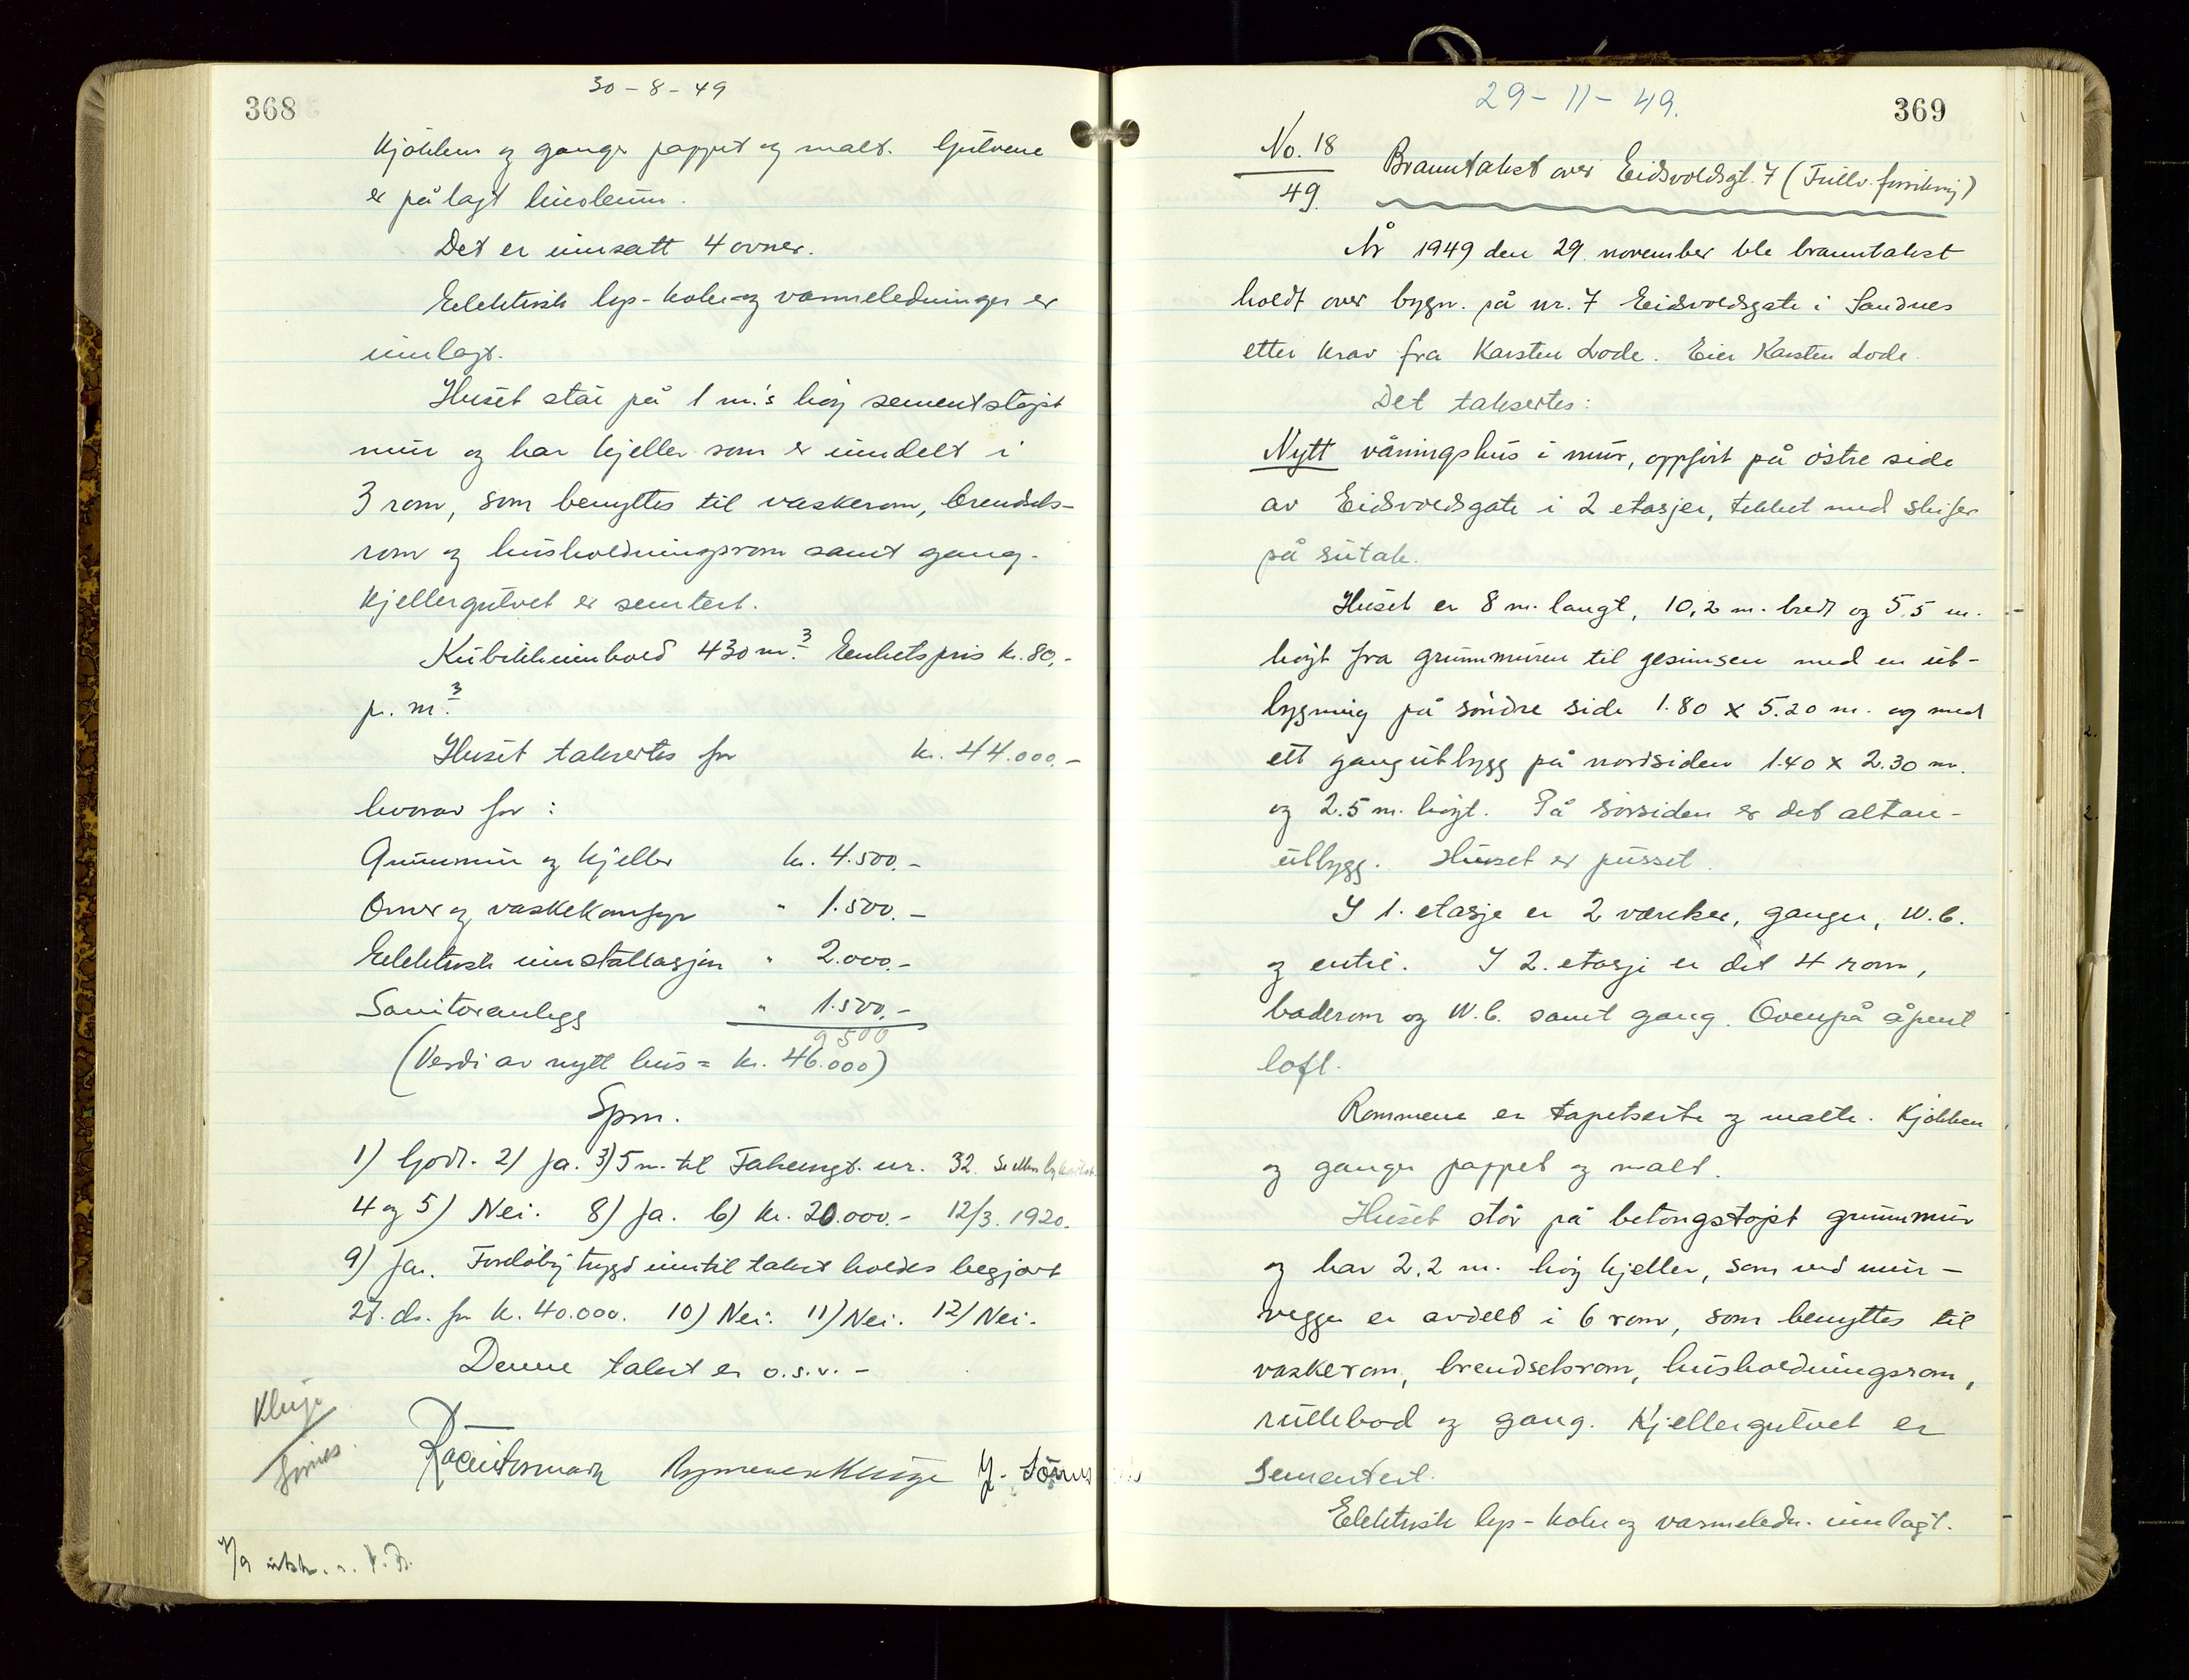 368
30-8-49
Kjökken og ganger pappet og malt. Gulvene
er pålagt linoleum.
Det er innsatt 4 ovner.
Elektrisk lys- koke- og varmeledninger er
innlagt.
Huset står på 1 m.'s höy sementstöpt
mur og har kjeller som er inndelt i
3 rom, som benyttes til vaskerom, brendsels-
rom og husholdningsrom samt gang.
Kjellergulvet er sementert.
Kubikkinnhold 430 m³. Enhetspris kr. 80,-
p. m³.
Huset takseres for kr. 44.000.-
hvorav for:
Grunnmur og kjeller kr. 4.500.-
Ovner og vaskekomfyr " 1.500.-
Elektrisk innstallasjon " 2.000.-
Sanitæranlegg " 1.500.-
9500
(Verdi av nytt hus = kr. 46.000)
Spm.
1) Godt. 2) Ja. 3) 5 m. til Takstngt. nr. 32.
4 og 5) Nei. 8) Ja. 6) kr. 20.000.- 12/3. 1920.
9) Ja. Foreløbig trygd inntil takst holdes begjært
27. ds. for kr. 40.000. 10) Nei. 11) Nei. 12) Nei.
Denne takst er o.s.v.-
Kluge
7/9 utsk.
369
29-11-49.
No. 18
49.
Branntakst over Eidsvoldsgt. 7 (Fullv. forsikring)
År 1949 den 29. november ble branntakst
holdt over bygn. på nr. 7 Eidsvoldsgate i Sandnes
etter krav fra Karsten Lode. Eier Karsten Lode.
Det taksertes:
Nytt våningshus i mur, oppfört på östre side
av Eidsvoldsgate i 2 etasjer, tekket med skifer
på sutak.
Huset er 8 m. langt, 10,2 m. bredt og 5.5 m.
höyt fra grunnmuren til gesimsen med en ut-
bygning på söndre side 1.80 x 5.20 m. og med
ett gangutbygg på nordsiden 1.40 x 2.30 m.
og 2.5 m. höyt. På sörsiden er det altan-
utbygg. Huset er pusset.
I 1. etasje er 2 værelser, ganger, W.C.
og entré. I 2. etasje er det 4 rom,
baderom og W.C. samt gang. Ovenpå åpent
loft.
Rommene er tapetserte og malte. Kjökken
og ganger pappet og malt.
Huset står på betongstöpt grunnmur
og har 2,2 m. höy kjeller, som ved mur-
vegger er avdelt i 6 rom, som benyttes til
vaskerom, brendselsrom, husholdningsrom,
rullebod og gang. Kjellergulvet er
sementert.
Elektrisk lys- koke og varmeledn. innlagt.